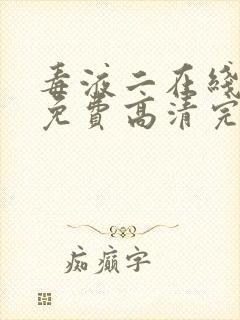 毒液二在线
免费高清完
痴癫字